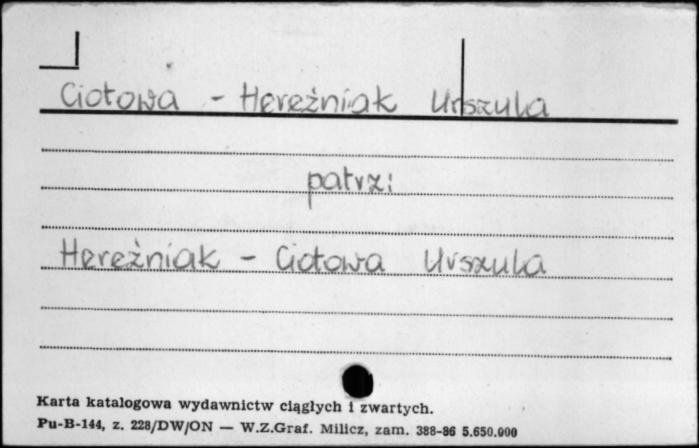 Ciotowa - Hereźniak Urszula
patrz:
Hereźniak - Ciotowa Urszula
Karta katalogowa wydawnictw ciągłych i zwartych.
Pu-B-144, z. 228/DW/ON — W.Z.Graf. Milicz, zam. 388-86 5.650.000